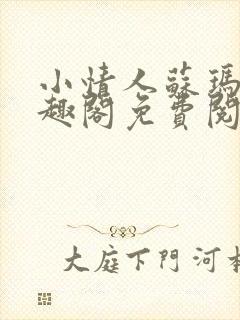 小情人蘇瑪
趣閣免費閱
大庭下門河